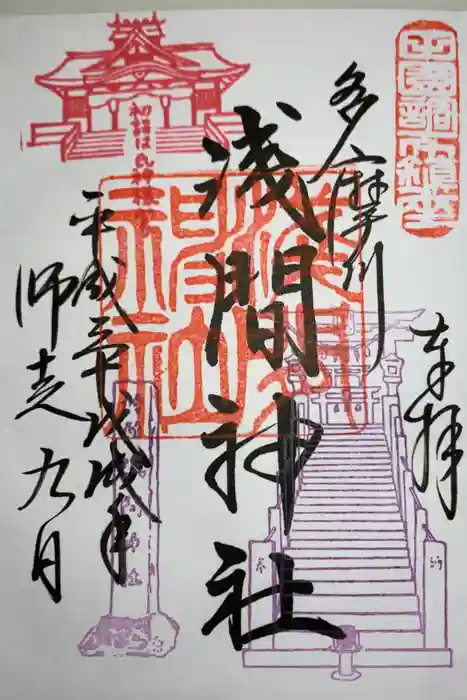 田園調布鎮座
奉拝
多摩川
浅間神社
初詣は氏神様へ
平成三十戊戌年
師走九日